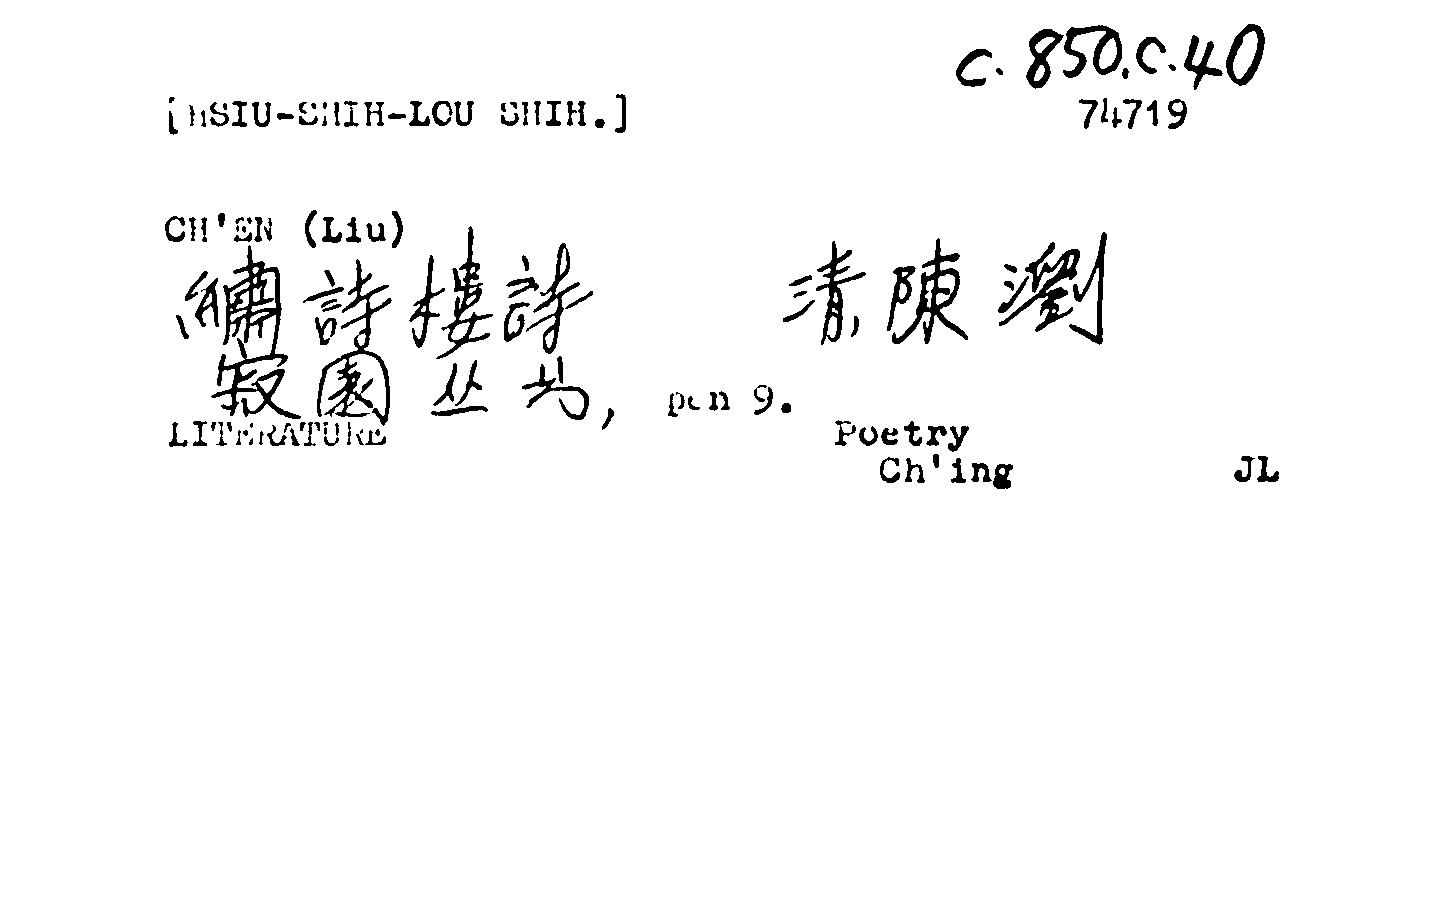 c.850.c.40
[HSIU-SHIH-LOU SHIH.] 74719
CH'EN (Liu)
繡詩樓詩 清陳瀏
寂園丛书, pen 9.
LITERATURE Poetry
Ch'ing JL